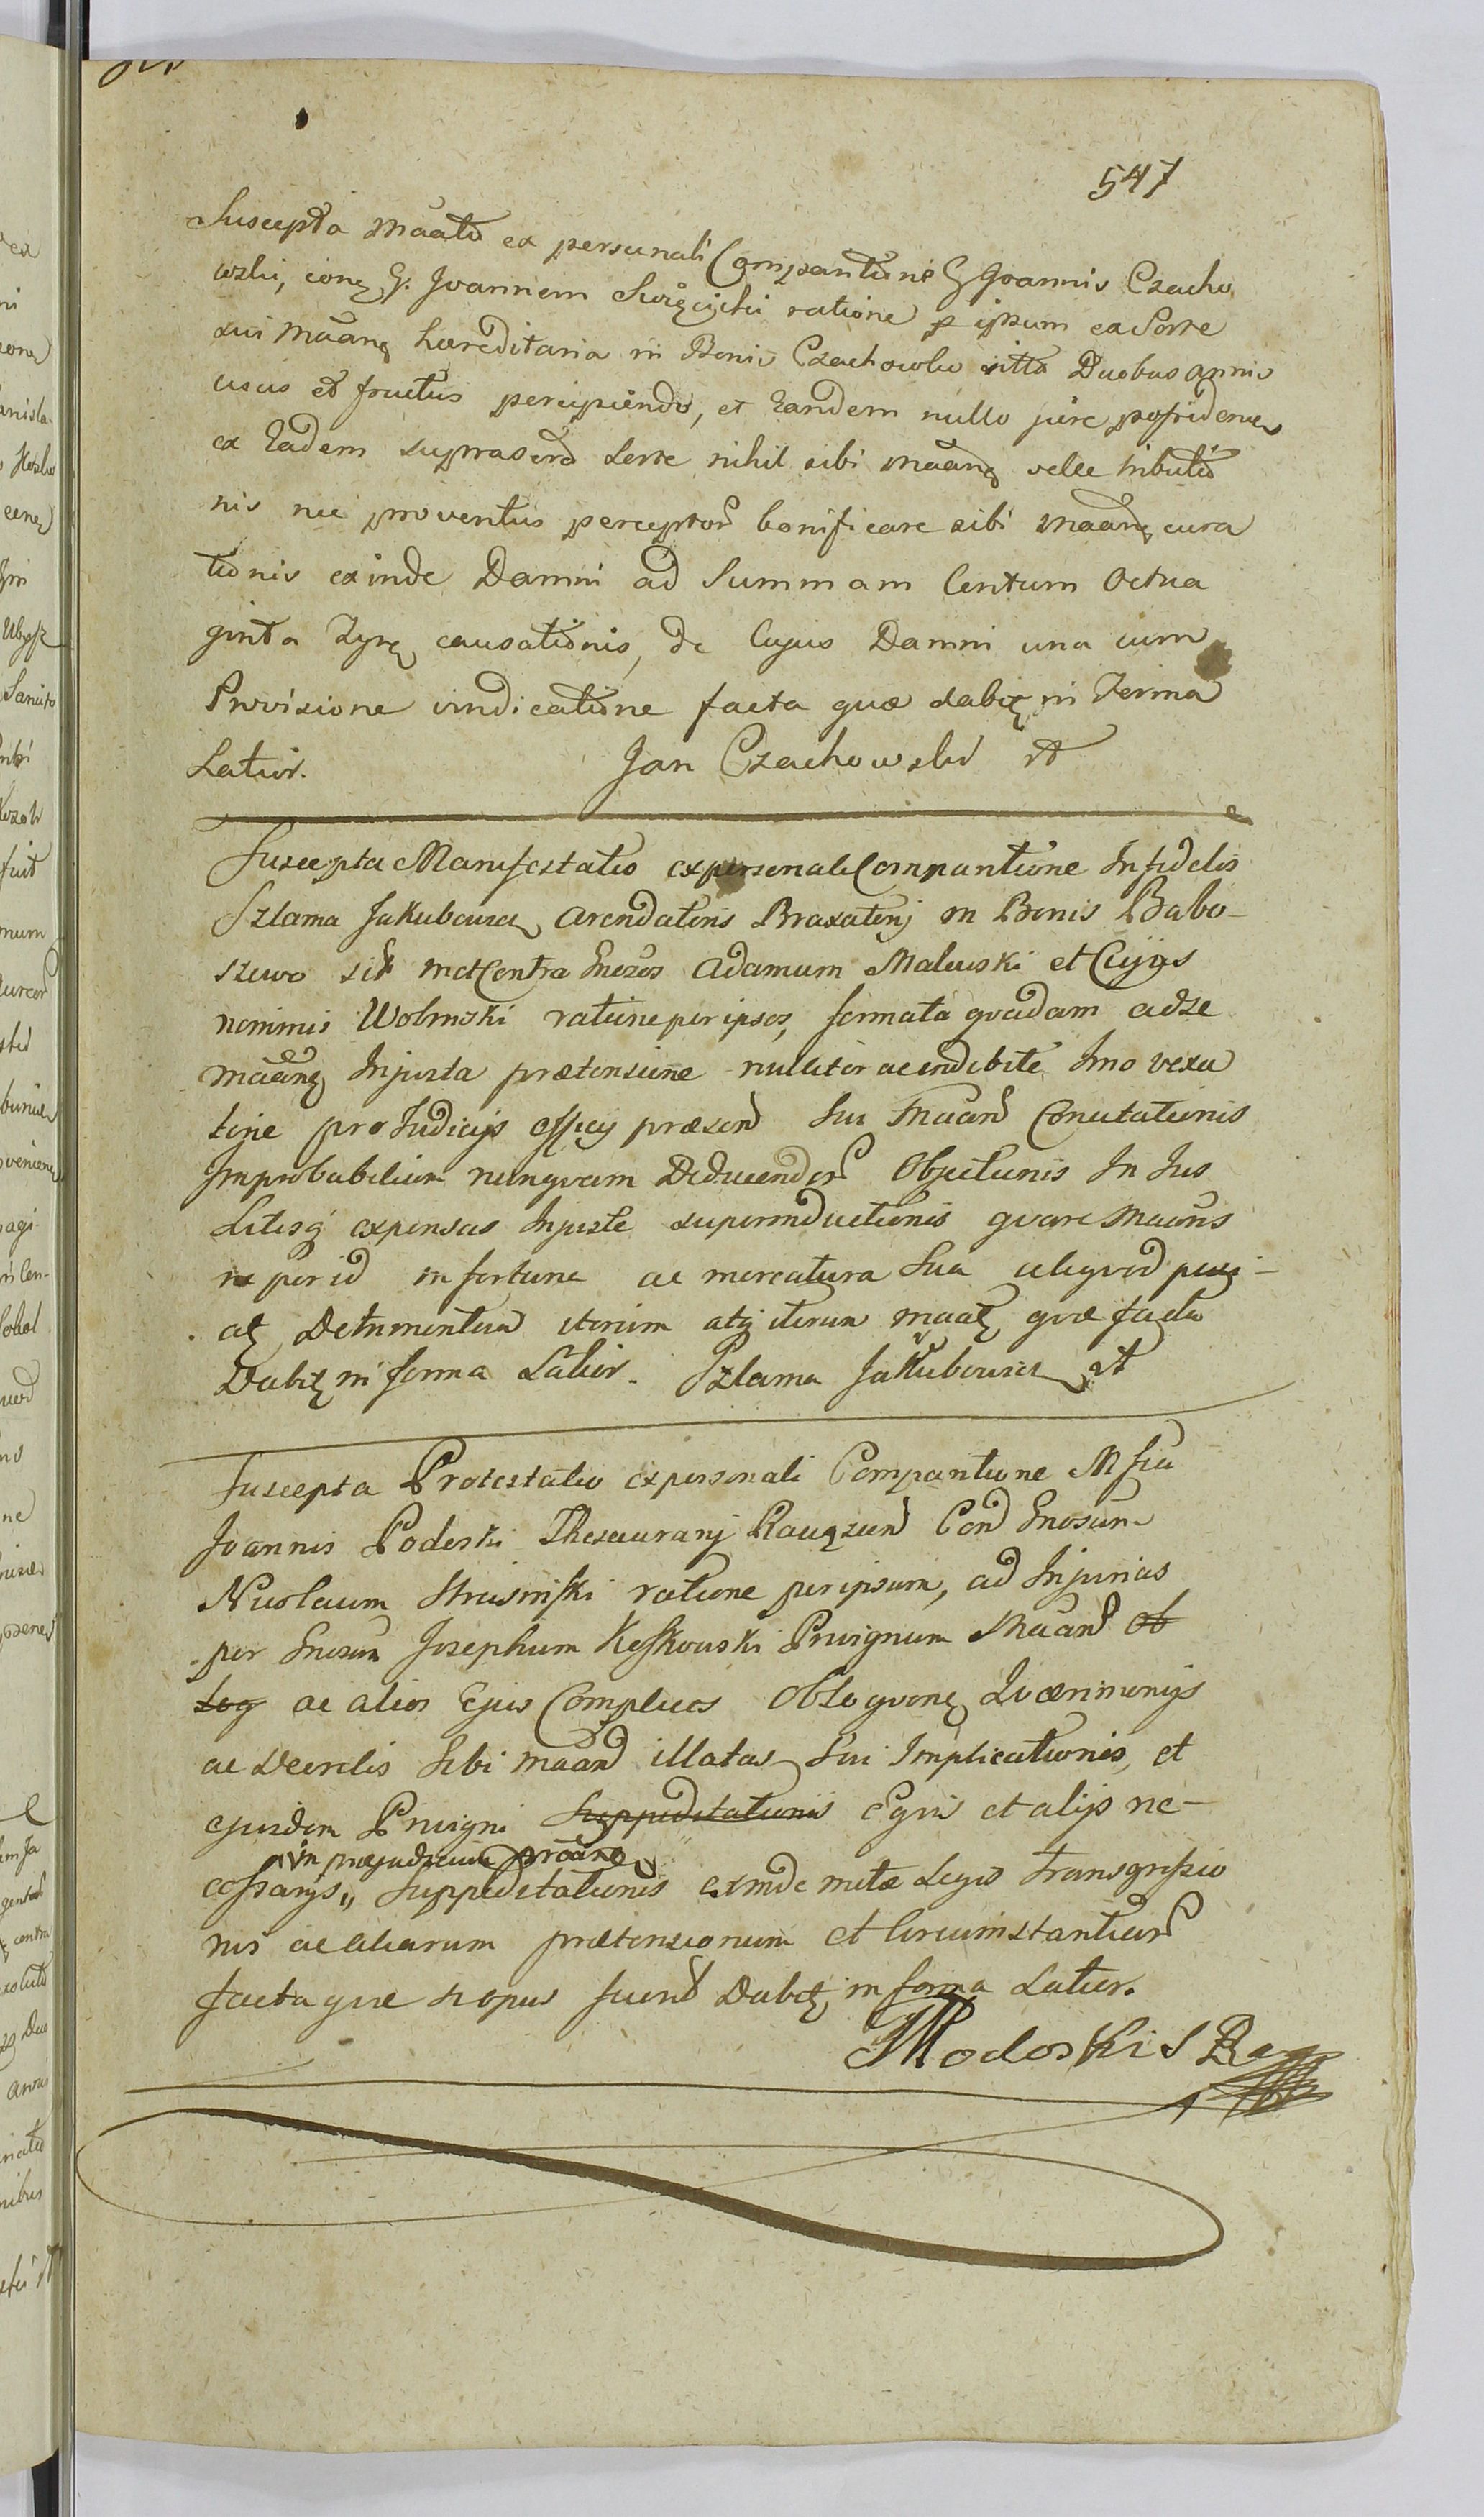 547
Suscepta Maatio ex personali Compantione G Joannis Czacho
wski, cone G. Joannem Święcicki ratione p ipsum ex Sorte
sui Maane hæreditaria in Bonis Czachowko sitta Duobus annis
usus et fructus percipiendo, et Eandem nullo jure possidene
ex Eadem suprascrd Sorte nihil sibi Maane velle tributio
nis nec proventus perceptor bonificare sibi Maane cura
tionis exinde Damni ad Summam Centum Octua
ginta Zyne causationis, de Cujus Damni una cum
Provisione vindicatione facta quæ dabit in Terma
Latior. Jan Czachowski
Suscepta Manifestatio ex personali Compantione Infidelis
Szlama Jakubowicz Arendatoris Braxatorij in Bonis Babo-
szewo sit Contra Gnezos Adamum Maleuski et Cujus
nominis Wolinski ratione per ipsos, formata qvadam adse
Maane Injusta prætensione nulliter ac indebite Imo vexa
tione pro Judicijs officij præsend Sui Maand Conutationis
Improbabilium nunqvam Deducendor Objectionis In Jus
Litisq expensas Injuste superinductionis qvare Maans
ne per id in fortuna ac mercatura Sua aliqvod
at Detrimentum iterum atq iterum maat qvæ facta
Dabit in forma Latior. Szlama Jakubowicz
Suscepta Protestatio ex personali Compantione M fici
Joannis Podoski Thesaurarij Rauzsend Cond Gnosum
Nicolaum Strusinski ratione per ipsum, ad Injurias
per Gnosum Josephum Keskowski Privignum Maand Ob
log ac alios Ejus Complices Obloqvone Qværimonijs
ac Decretis Sibi Maand illatas Sui Implicationis, et
ejusdem Privigni Suppeditationis Eqvis et alijs ne-
in præjudicium
cessarijs,, Suppeditationis exinde metæ Legis transgressio
nis ac aliarum prætensionum et Circumstantiar
facta qvæ si opus fuerit Dabit in forma Latior.
JPodoski S R